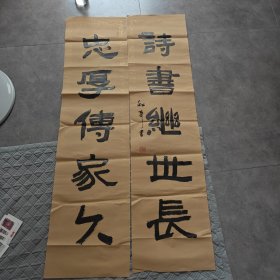 詩書繼世長
忠厚傳家久